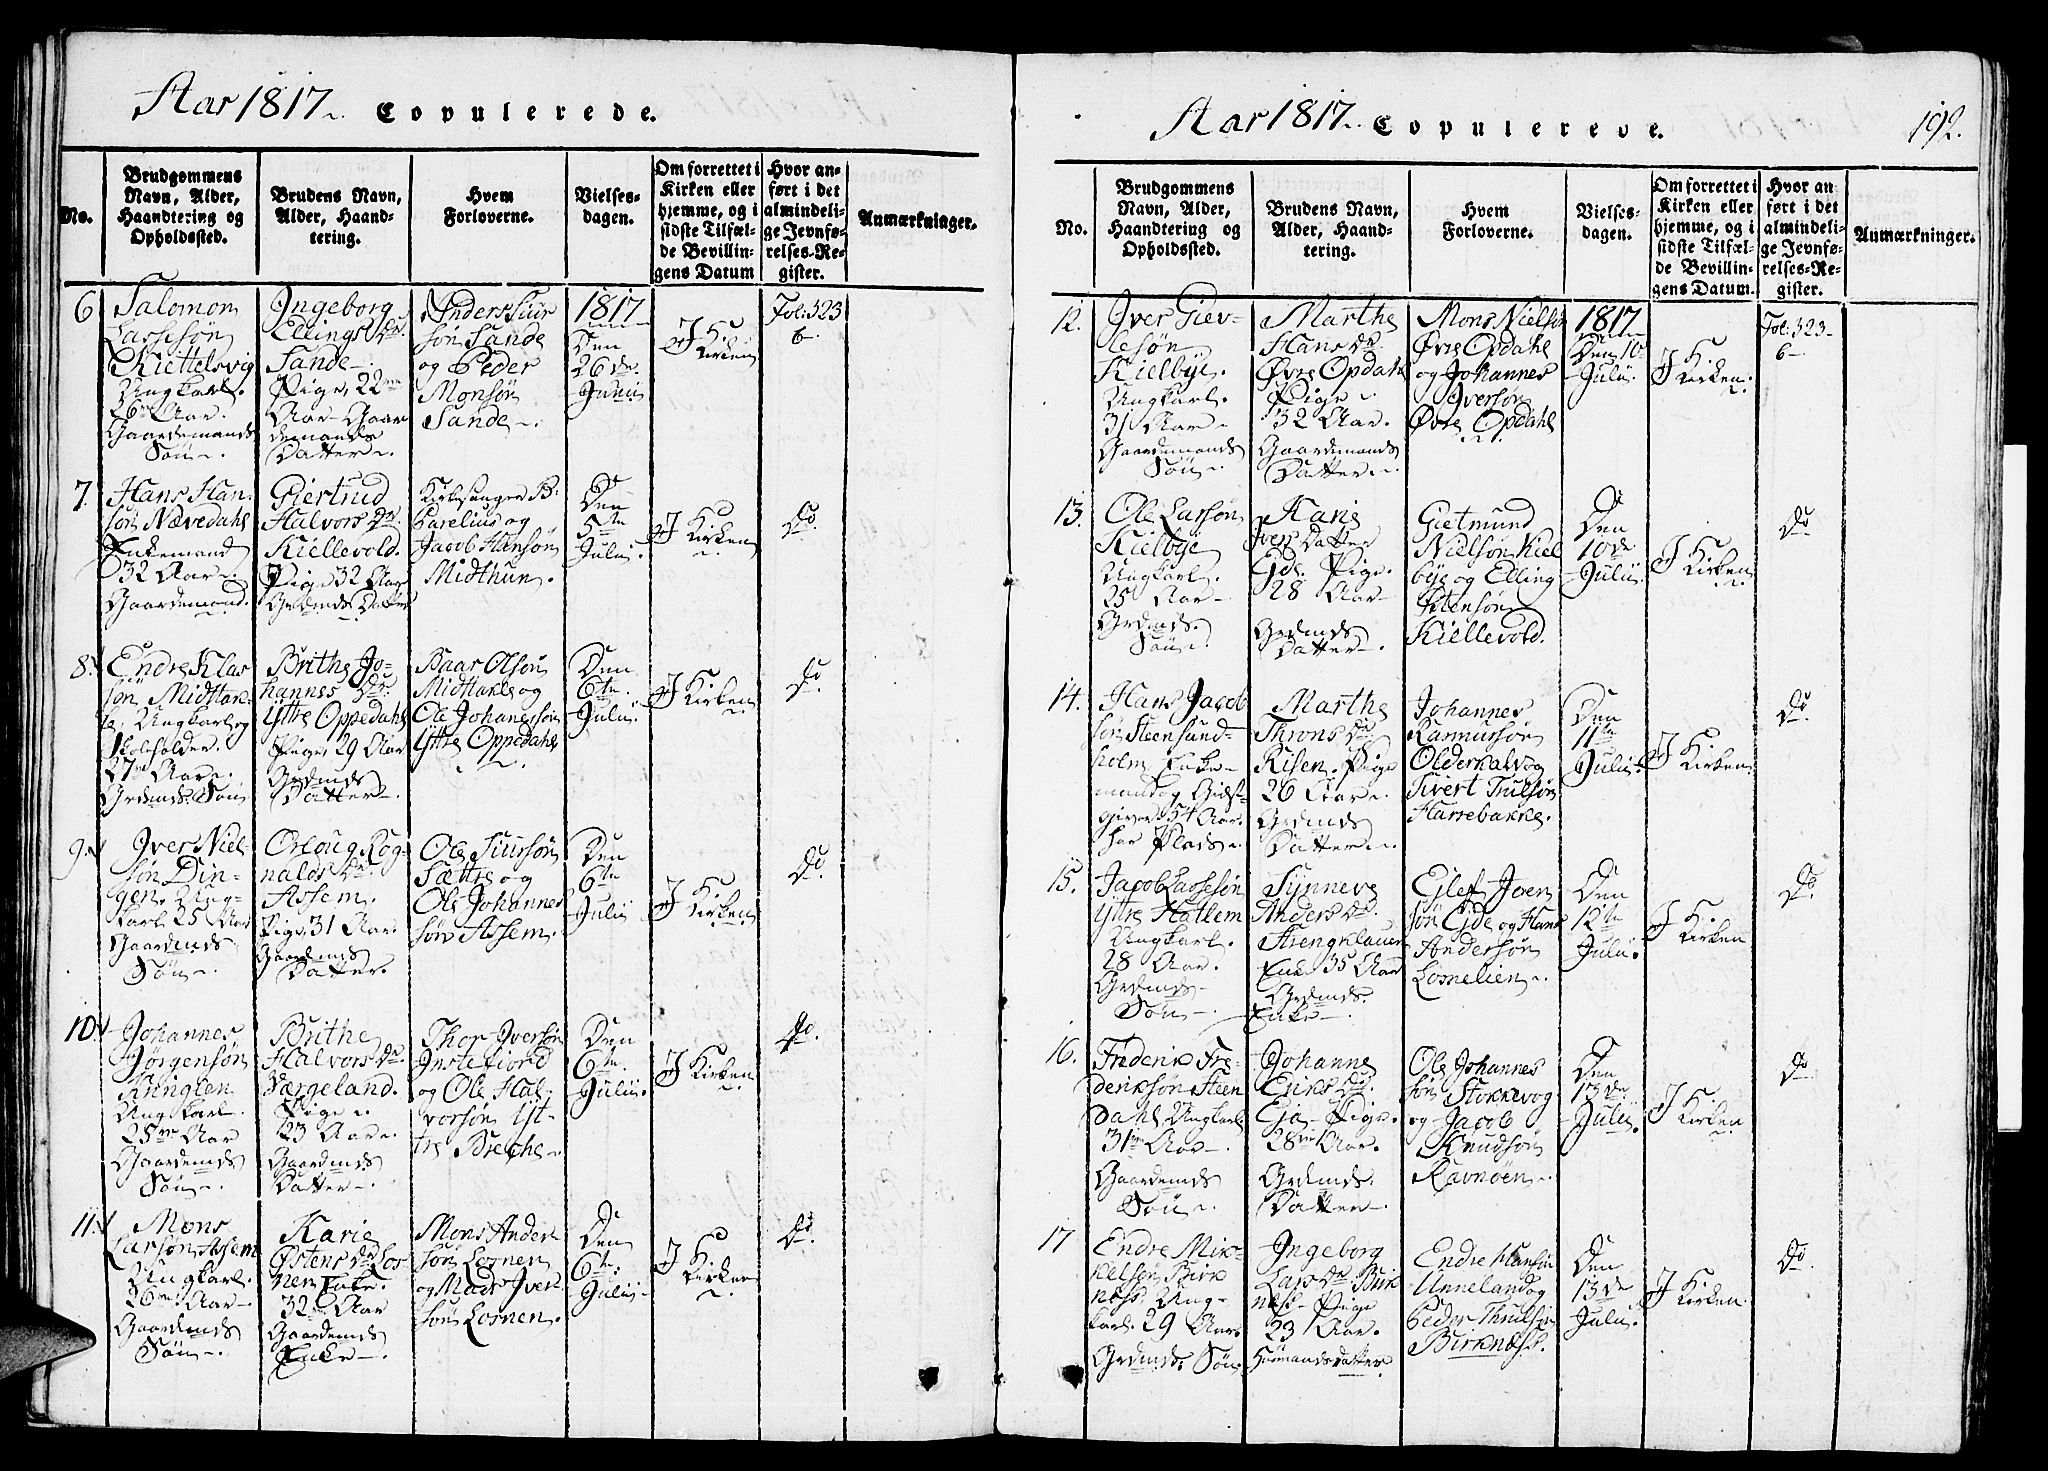 Aar 1817. Copulerede.
No.
Brudgommens
Navn, Alder,
Haandtering og
Opholdssted.
Brudens Navn,
Alder, Haand-
tering.
Hvem
Forloverne.
Vielses-
dagen.
Om forrettet i
Kirken eller
hjemme, og i
sidste Tilfæl-
de Bevillin-
gens Datum
Hvor an-
ført i det
almindeli-
ge Jevnfø-
relses-Re-
gister.
Anmærkninger.
6
Salomon
Lassesøn
Kiettelsvig
Ungkarl.
26 Aar.
Gaardemands
Søn.
Ingeborg
Ellings Dr.
Sande
Pige, 22
Aar Gaar
demands
Datter.
Anders Siur
søn Sande
og Peder
Monsøn
Sande
1817
Den
26de
Junii
I
Kirken
Fol: 323
6
7.
Hans Han-
søn Nævedahl
Enkemand
32 Aar.
Gaardemand.
Giertrud
Halvors Dr.
Kiellevold.
Pige, 32 Aar
Grdmds Datter
Kirkesanger B:
Parelius og
Jacob Hansøn
Midthun.
Den
5te
Julii
I
Kirken
Do.
8.
Endre Klas
søn Midttak-
le, Ungkarl og
Skoleholder.
27 Aar.
Grdmds: Søn
Brithe Jo-
hannes Dr.
Yttre Oppedahl
Pige, 29 Aar
Grdmds
Datter.
Baar Olsøn
Midttakle og
Ole Johanessøn
Yttre Oppedahl
Den
6te
Julii
I
Kirken
Do.
9.
Iver Niel-
søn Din-
gen, Ung-
karl 25 Aar
Gaardmds
Søn.
Orloug Rog-
nalds Dr.
Assem.
Pige, 31 Aar.
Gaardmds
Datter.
Ole Siursøn
Sættre og
Ole Johannes
søn Assem.
Den
6te
Julii
I
Kirken
Do.
10.
Johannes
Jørgensøn
Ringlen
Ungkarl.
25 Aar
Gaardemds
Søn.
Brithe
Halvors Dr.
Værgeland.
Pige
23 Aar.
Gaardmds
Datter.
Thor Iversøn
Instefiord
og Ole Hal-
vorsøn Yt-
tre Breche
Den
6te
Julii
I
Kirken
Do.
11.
Mons
Larsøn Assem
Ungkarl.
26 Aar
Gaardmds
Søn.
Karie
Østens Dr Los
nen Enke.
32 Aar
Gaardemds
Enke.
Mons Ander
søn Losnen
og Mads Iver
søn Losnen.
Den
6te
Julii
I
Kirken
Do.
Aar 1817. Copulerede.
192.
No.
Brudgommens
Navn, Alder,
Haandtering og
Opholdssted.
Brudens Navn,
Alder, Haand-
tering.
Hvem
Forloverne.
Vielses-
dagen.
Om forrettet i
Kirken eller
hjemme, og i
sidste Tilfæl-
de Bevillin-
gens Datum.
Hvor an-
ført i det
almindeli-
ge Jevnfø-
relses-Re-
gister.
Anmærkninger.
12.
Iver Giev-
lesøn
Kielbye.
Ungkarl.
31 Aar
Gaardemands
Søn.
Marthe
Hans Dr.
Øvre Opdahl
Pige
32 Aar.
Gaardemands
Datter.
Mons Nielsøn
Øvre Opdahl
og Johannes
Iversøn
Øvre Opdahl
1817.
Den 10
Julii
I
Kirken.
Fol: 323
6
13.
Ole Larsøn
Kielbye
Ungkarl.
25 Aar
Grdmds.
Søn.
Karie
Ivers Datter
Eide. Pige.
28 Aar
Grdmds
Datter.
Gietmund
Nielsøn Kiel
bye og Elling
Stensøn
Kiellevold.
Den
10de
Julii
I
Kirken
Do
14.
Hans Jacob
søn Steensund-
holm, Enke-
mand og Giest-
giver. 54 Aar.
har Plads.
Marthe
Throns Dr
Risen. Pige
26 Aar.
Grdmds
Datter.
Johannes
Rasmussøn
Olderkalv og
Sivert Trulsøn
Harrebakke.
Den
11te
Julii
I
Kirken
Do.
15.
Jacob Lassesøn
Yttre Hatlem
Ungkarl.
28 Aar.
Grdmds
Søn.
Synneve
Anders Dr.
Strengklauen
Enke 35 Aar
Grdmds.
Enke.
Ejlef Joen
søn Ejde og Hans
Andersøn
Losnelien.
Den
12te
Julii.
I
Kirken
Do.
16.
Frederik Fre-
deriksøn Steen
Dahl Ungkarl.
31 Aar.
Gaardemds
Søn.
Johanne
Eriks Dr.
Eja Pige.
28 Aar.
Grdmds.
Datter.
Ole Johannes
søn Stokkevog
og Jacob
Knudsøn
Ravnøen.
Den
13de
Julii.
I
Kirken
Do
17
Endre Mik-
kelsøn Birk
næss. Ung-
karl. 29 Aar.
Grdmds. Søn.
Ingeborg
Lars Dr. Birk
næss. Pige
23 Aar.
Huusmands datter
Endre Hansøn
Unneland og
Peder Thrulsen
Birknæss.
Den
13de
Julii.
I
Kirken.
Do.